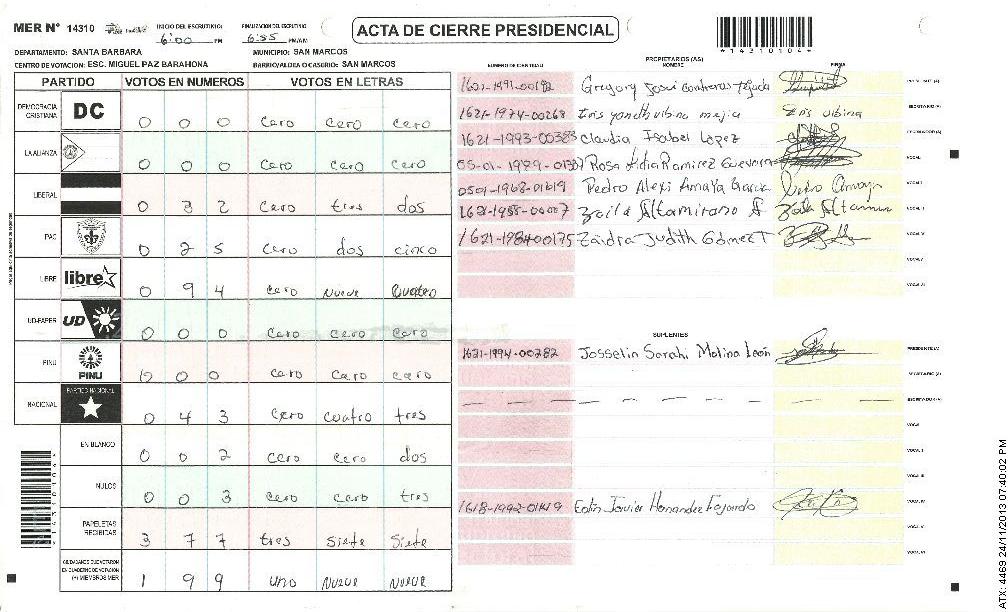 MER N° 14310 INICIO DEL ESCRUTINIO: 6:00 PM FINALIZACION DEL ESCRUTINIO: 6:55 PM/AM
ACTA DE CIERRE PRESIDENCIAL
*14310104*
DEPARTAMENTO: SANTA BARBARA MUNICIPIO: SAN MARCOS
CENTRO DE VOTACION: ESC. MIGUEL PAZ BARAHONA BARRIO/ALDEA O CASERIO: SAN MARCOS
PARTIDO VOTOS EN NUMEROS VOTOS EN LETRAS
DEMOCRACIA CRISTIANA DC 0 0 0 cero cero cero
LA ALIANZA 0 0 0 cero cero cero
LIBERAL 0 3 2 cero tres dos
PAC 0 2 5 cero dos cinco
LIBRE libre 0 9 4 cero nueve cuatro
UD-FAPER UD 0 0 0 cero cero cero
PINU PINU 0 0 0 cero cero cero
NACIONAL PARTIDO NACIONAL 0 4 3 cero cuatro tres
EN BLANCO 0 0 2 cero cero dos
NULOS 0 0 3 cero cero tres
PAPELETAS RECIBIDAS 3 7 7 tres siete siete
CIUDADANOS QUE VOTARON EN CUADERNO DE VOTACION (+) MIEMBROS MER 1 9 9 uno nueve nueve
PROPIETARIOS (AS)
NUMERO DE IDENTIDAD NOMBRE FIRMA
Gregory Josi contreras tejada PRESIDENTE (A)
1621-1974-00268 Iris yaneth ubina mejia Iris ubina SECRETARIO (A)
1621-1993-00383 Claudia Isabel Lopez ESCRUTADOR (A)
Rosa Lidia Ramirez Guevara VOCAL I
0501-1968-01619 Pedro Alexi Amaya Garcia Pedro Amaya VOCAL II
Zoila Altamirano A VOCAL III
1621-1984-00175 Zaidra Judith Gómez T VOCAL IV
VOCAL V
VOCAL VI
SUPLENTES
1621-1994-00282 Josselin Sarahi Molina León PRESIDENTE (A)
SECRETARIO (A)
ESCRUTADOR (A)
VOCAL I
VOCAL II
VOCAL III
1618-1992-01419 Edin Javier Hernandez Fajardo VOCAL IV
VOCAL V
VOCAL VI
ATX: 4469 24/11/2013 07:40:02 PM